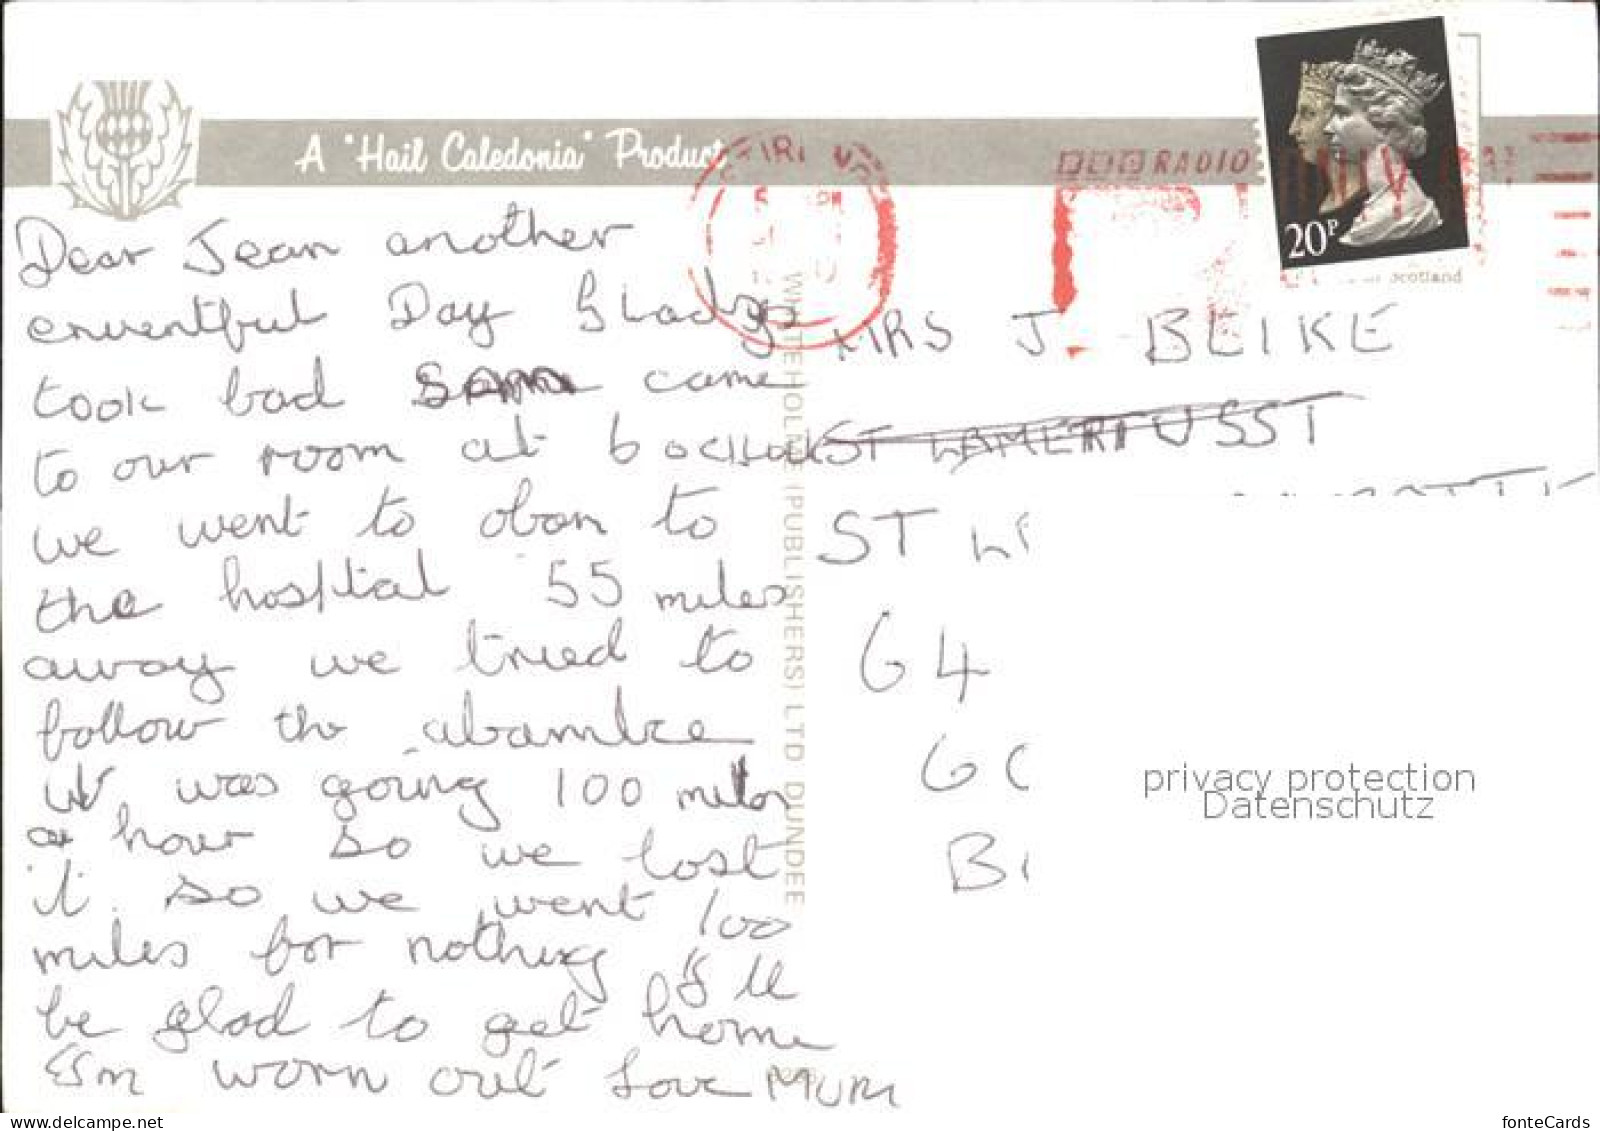 A "Hail Caledonia" Product
BBC RADIO
20P
Scotland
Dear Jean another
enventful Day Gladys
took bad Sam came
to our room at 6 oclock
we went to oban to
the hospital 55 miles
away we tried to
follow the abamlce
it was going 100 miles
a hour so we lost
it. so we went 100
miles for nothing I'll
be glad to get home
I'm worn out Love MUM
WHITEHOLME (PUBLISHERS) LTD DUNDEE
MRS J. BLIKE
ST
ST
G4
privacy protection
Datenschutz
www.delcampe.net
fonteCards